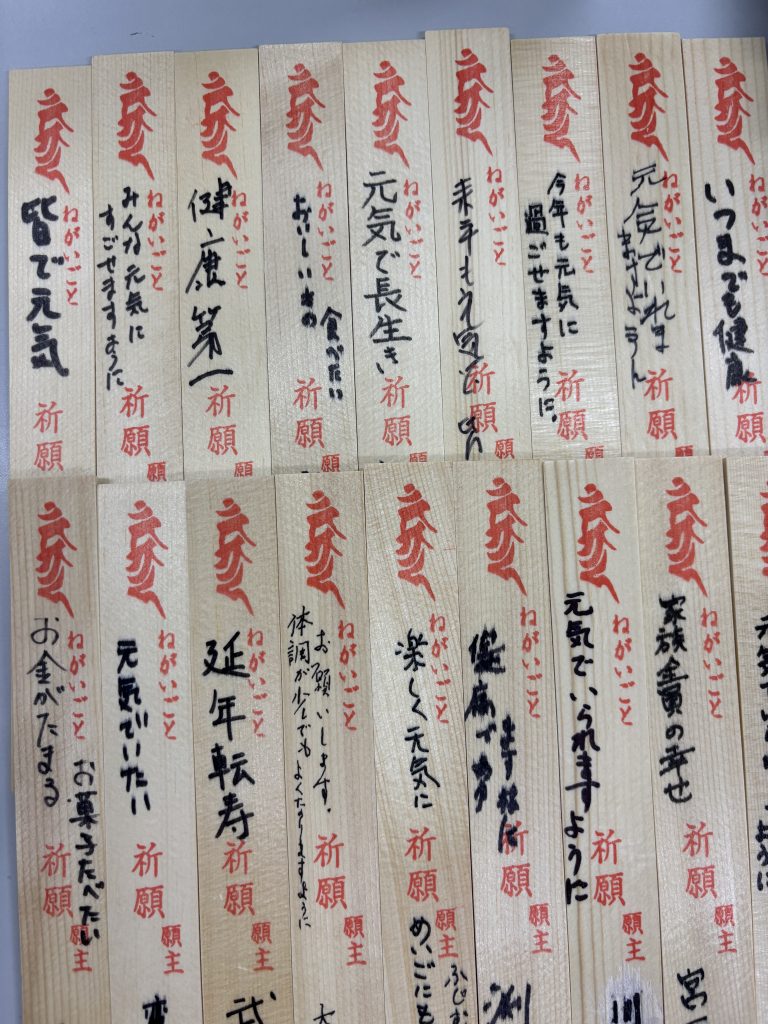 ねがいごと
皆で元気
祈願
ねがいごと
みんな元気に
すごせますように
祈願
願
ねがいごと
健康第一
祈願
願
ねがいごと
おいしいもの
食べたい
祈願
願
ねがいごと
元気で長生き
祈願
願
ねがいごと
来年も
ねがいごと
今年も元気に
過ごせますように。
祈願
願
ねがいごと
元気でいれま
祈願
願
いつまでも健康
祈願
願
ねがいごと
お金がたまる
お菓子たべたい
祈願
願主
ねがいごと
元気でいたい
祈願
願主
ねがいごと
延年転寿
祈願
願主
武
ねがいごと
お願いします。
体調が少しでもよくなりますように
祈願
願主
ねがいごと
楽しく元気に
祈願
願主
めいごにも
ねがいごと
健康で
ます様に
祈願
願主
渕
ねがいごと
元気でいられますように
祈願
願主
川
ねがいごと
家族全員の幸せ
祈願
願主
宮